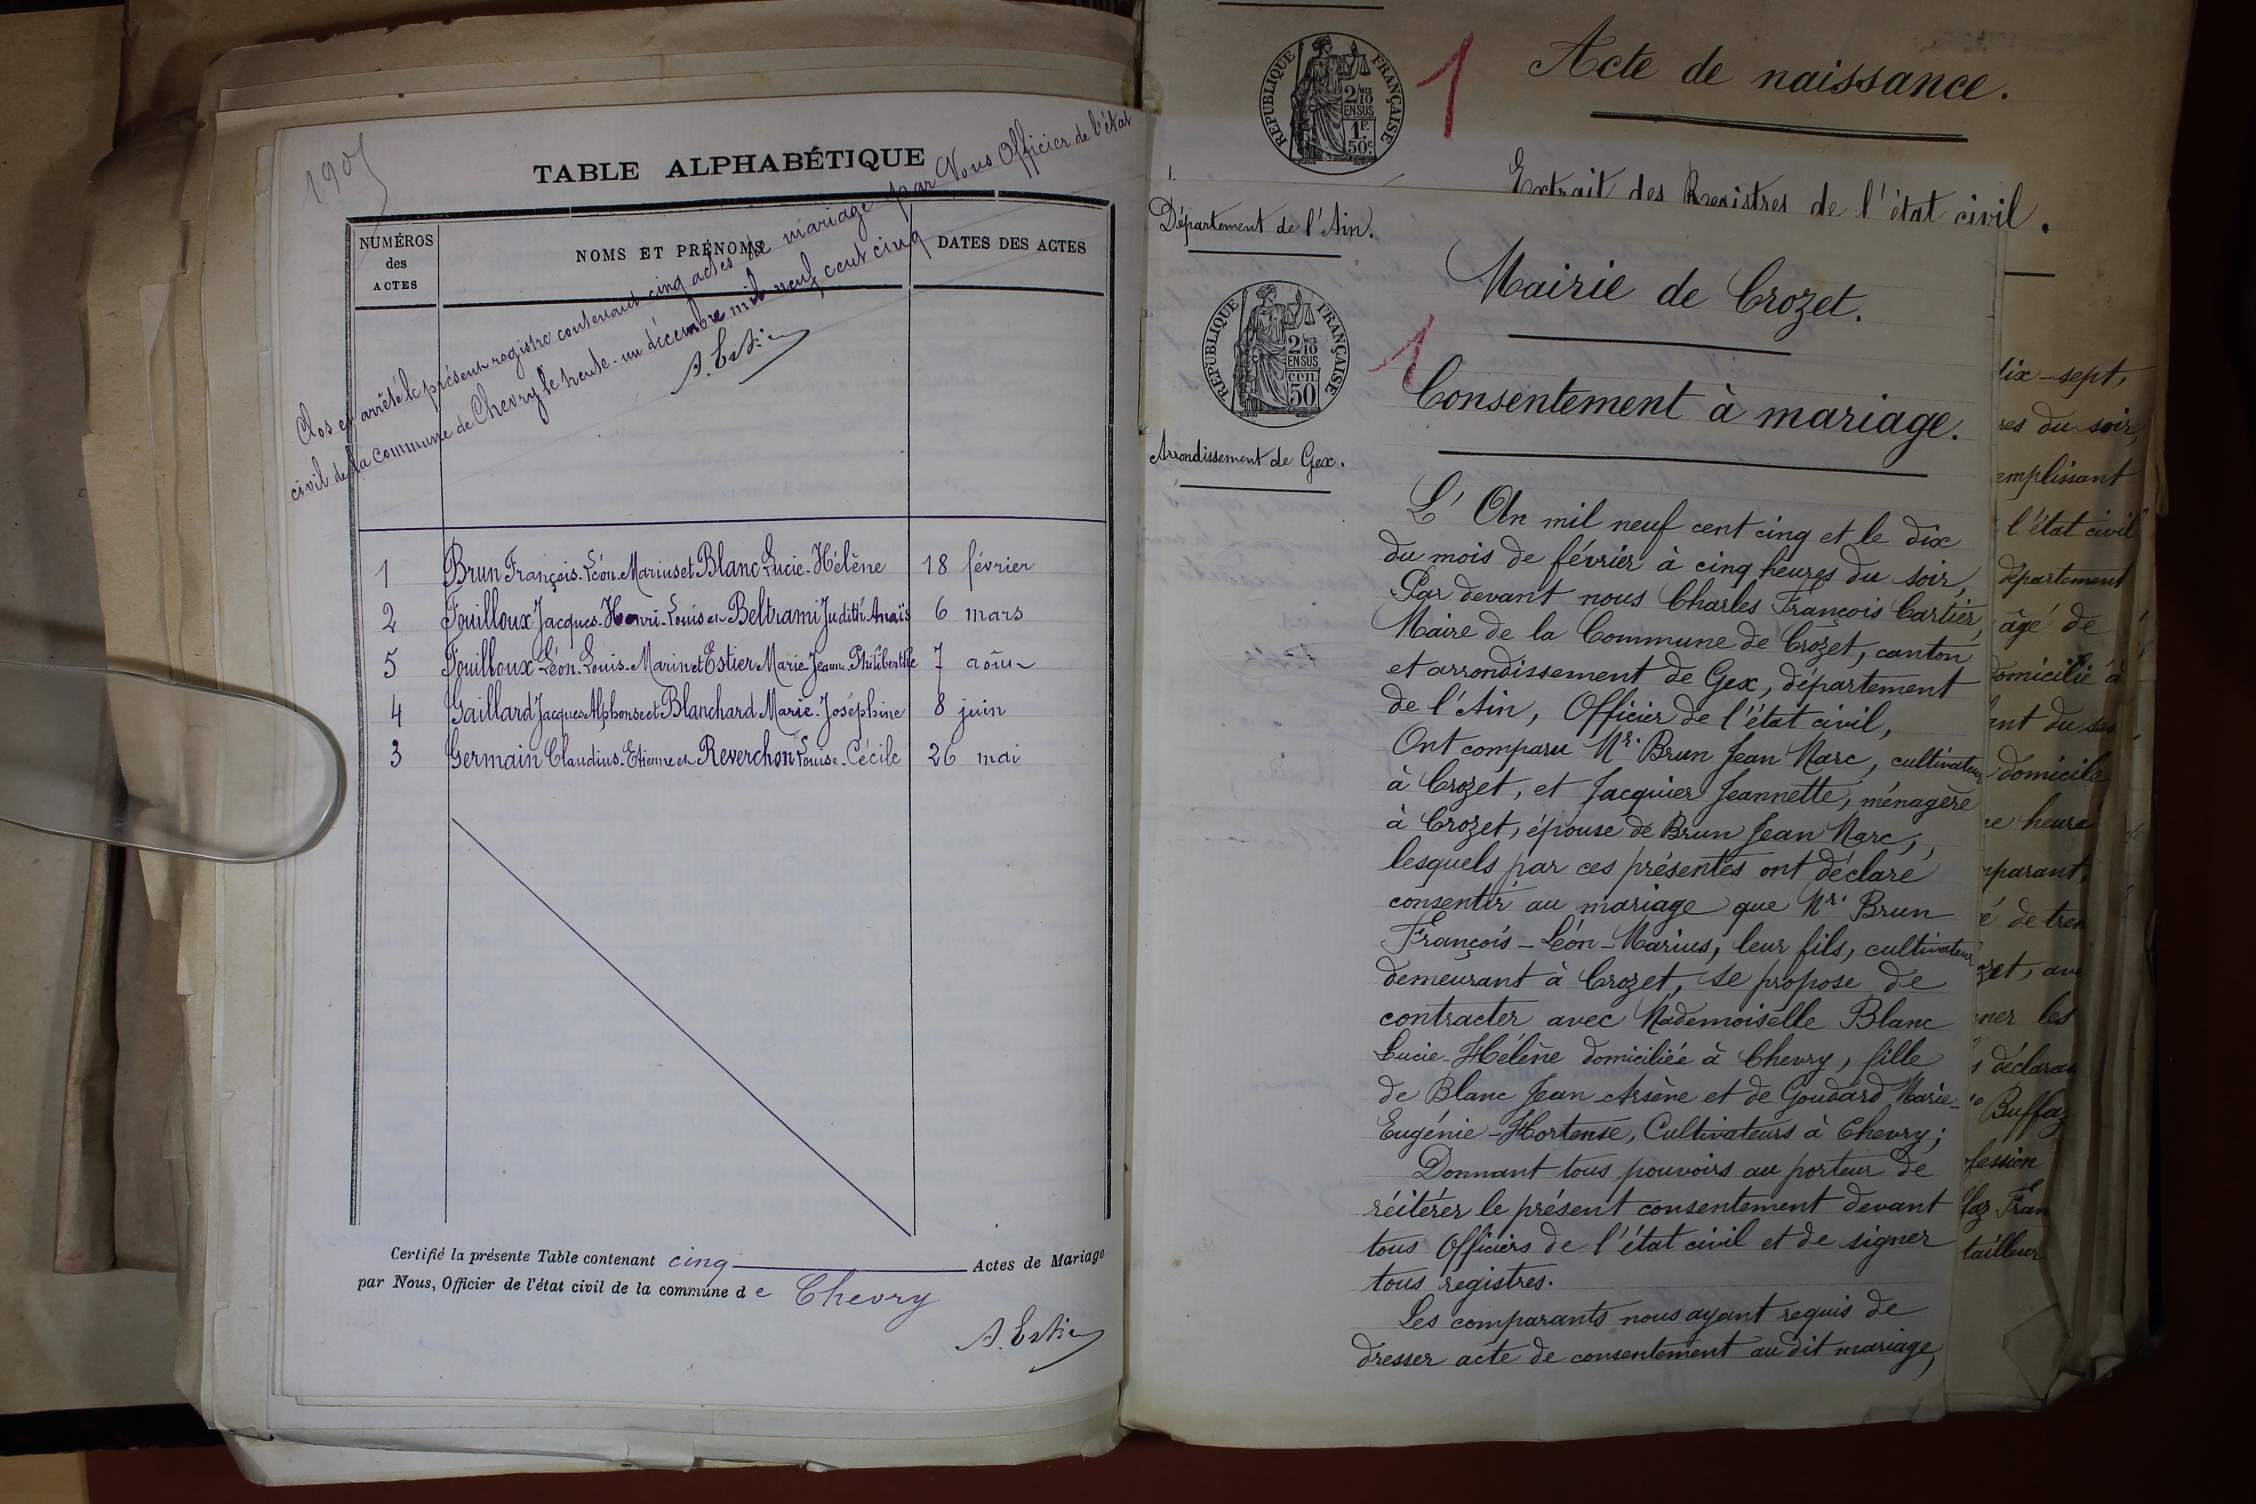 1905
TABLE ALPHABÉTIQUE
Clos et arrêté le présent registre contenant cinq actes de mariage par Nous Officier de l'état
civil de la commune de Chevry le trente-un décembre mil neuf cent cinq
A. Estier
NUMÉROS des ACTES NOMS ET PRÉNOMS DATES DES ACTES
1 Brun François-Léon-Marius et Blanc Lucie-Hélène 18 février
2 Fouilloux Jacques-Henri-Louis et Beltrami Judith Anaïs 6 mars
5 Fouilloux Léon-Louis-Marin et Estier Marie-Jeanne-Philiberthe 7 août
4 Gaillard Jacques Alphonse et Blanchard Marie-Joséphine 8 juin
3 Germain Claudius-Etienne et Reverchon Louise-Cécile 26 mai
Certifié la présente Table contenant cinq Actes de Mariage
par Nous, Officier de l'état civil de la commune de Chevry
A. Estier
RÉPUBLIQUE FRANÇAISE
2/10 EN SUS
1F. 50c.
1
Acte de naissance.
Extrait des Registres de l'état civil.
Département de l'Ain.
RÉPUBLIQUE FRANÇAISE
2/10 EN SUS
cen 50
Arrondissement de Gex.
Mairie de Crozet.
1
Consentement à mariage.
L'An mil neuf cent cinq et le dix
du mois de février à cinq heures du soir,
Par devant nous Charles François Cartier,
Maire de la Commune de Crozet, canton
et arrondissement de Gex, département
de l'Ain, Officier de l'état civil,
Ont comparu Mr. Brun Jean Marc, cultivateur
à Crozet, et Jacquier Jeannette, ménagère
à Crozet, épouse de Brun Jean Marc,
lesquels par ces présentes ont déclaré
consentir au mariage que Mr. Brun
François-Léon-Marius, leur fils, cultivateur
demeurant à Crozet, se propose de
contracter avec Mademoiselle Blanc
Lucie-Hélène domiciliée à Chevry, fille
de Blanc Jean-Arsène et de Goudard Marie-
Eugénie-Hortense, Cultivateurs à Chevry;
Donnant tous pouvoirs au porteur de
réitérer le présent consentement devant
tous Officiers de l'état civil et de signer
tous registres.
Les comparants nous ayant requis de
dresser acte de consentement au dit mariage,
dix-sept,
res du soir,
emplissant
l'état civil
département
âgé de
domicilié à
ant du sexe
domicile
ce heure
mparant,
é de tren
zet, av
ner les
s déclara
Buffaz
fession
faz Fran
tailleur